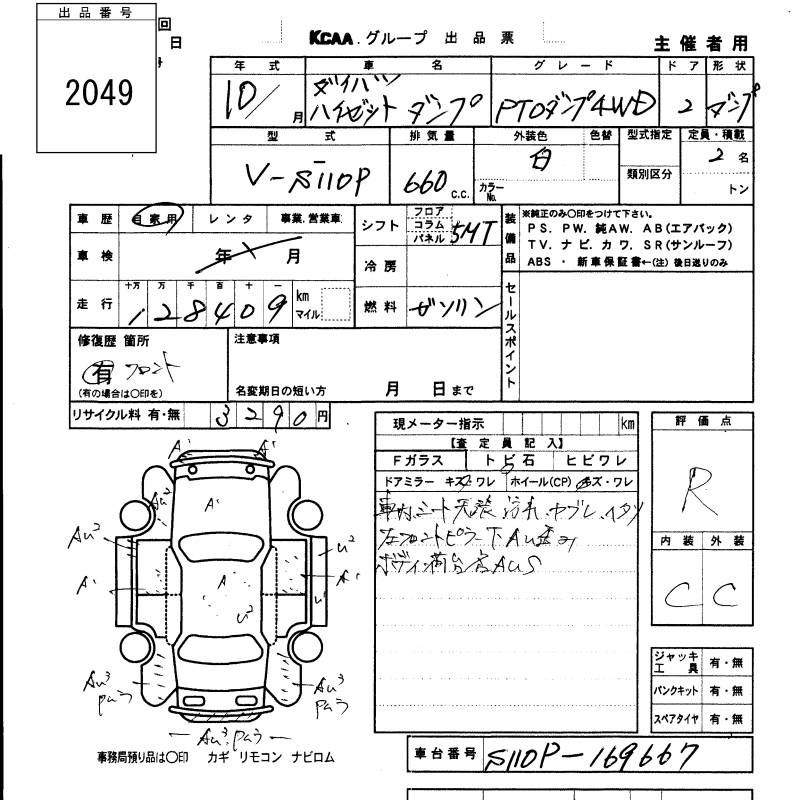 出品番号
2049
回
日
KCAA.グループ 出品票
主催者用
年式 車名 グレード ドア 形状
10/月 ダイハツ ハイゼット ダンプ PTOダンプ4WD 2 ダンプ
型式 排気量 外装色 色替 型式指定 定員・積載
V-S110P 660 C.C. 白 カラーNo. 類別区分 2名
トン
車歴 自家用 レンタ 事業.営業車
シフト フロア コラム パネル 5MT
装備品
※純正のみ〇印をつけて下さい。
PS. PW. 純AW. AB(エアバック)
TV. ナビ. カワ. SR(サンルーフ)
ABS ・ 新車保証書←(注) 後日送りのみ
車検 年 月
冷房
走行 十万 万 千 百 十 一
128409 km マイル
燃料 ガソリン
セールスポイント
修復歴 箇所
有 フロント
(有の場合は〇印を)
注意事項
名変期日の短い方 月 日まで
リサイクル料 有・無 3290円
現メーター指示 km
【査定員記入】
Fガラス トビ石 ヒビワレ
ドアミラー キズ・ワレ ホイール(CP) キズ・ワレ
車内、シート 天張 汚れ、ヤブレ、イタミ
左フロントピラー下AU
ボディ・荷台 AUS
評価点
R
内装 外装
C C
A' A'
AU² A'
AU² U²
A' A A' U'
U²
AU³ AU³
AU³
ジャッキ 工具 有・無
パンクキット 有・無
スペアタイヤ 有・無
事務局預り品は〇印 カギ リモコン ナビロム
車台番号 S110P-169667